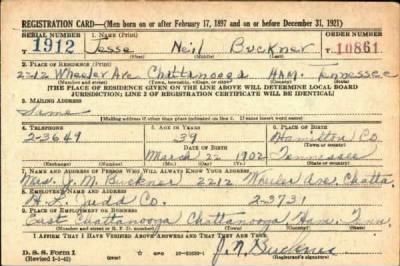 REGISTRATION CARD—(Men born on or after February 17, 1897 and on or before December 31, 1921)
SERIAL NUMBER 1. NAME (Print) ORDER NUMBER
1912 Jesse Neil Buckner T 10861
(First) (Middle) (Last)
2. PLACE OF RESIDENCE (Print)
2212 Wheeler Ave Chattanooga HAM. Tennessee
(Number and street) (Town, township, village, or city) (County) (State)
[THE PLACE OF RESIDENCE GIVEN ON THE LINE ABOVE WILL DETERMINE LOCAL BOARD
JURISDICTION; LINE 2 OF REGISTRATION CERTIFICATE WILL BE IDENTICAL]
3. MAILING ADDRESS
Same
[Mailing address if other than place indicated on line 2. If same insert word same]
4. TELEPHONE 5. AGE IN YEARS 6. PLACE OF BIRTH
2-3649 39 Hamilton Co
DATE OF BIRTH (Town or county)
March 22 1902 Tennessee
(Mo.) (Day) (Yr.) (State or country)
7. NAME AND ADDRESS OF PERSON WHO WILL ALWAYS KNOW YOUR ADDRESS
Mrs. J. N. Buckner 2212 Wheeler Ave. Chatta.
8. EMPLOYER'S NAME AND ADDRESS
H. L. Judd Co. 2-3731
9. PLACE OF EMPLOYMENT OR BUSINESS
East Chattanooga Chattanooga Ham. Tenn.
(Number and street or R. F. D. number) (Town) (County) (State)
I AFFIRM THAT I HAVE VERIFIED ABOVE ANSWERS AND THAT THEY ARE TRUE.
D. S. S. Form 1
J. N. Buckner